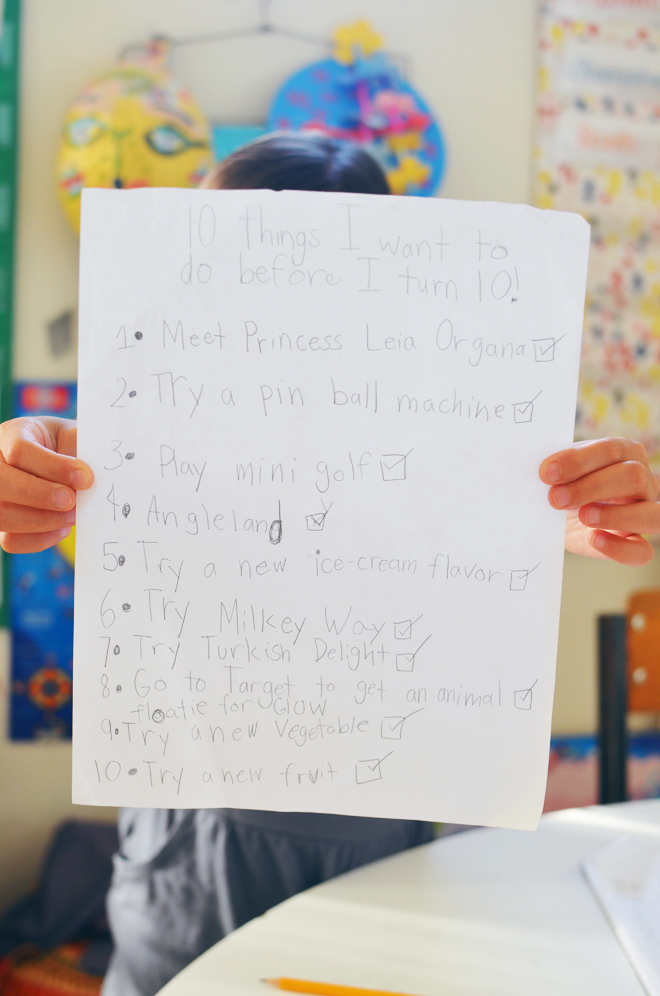 10 things I want to
do before I turn 10!
1. Meet Princess Leia Organa ☑
2. Try a pin ball machine ☑
3. Play mini golf ☑
4. Angleland ☑
5. Try a new ice-cream flavor ☑
6. Try Milkey Way ☑
7. Try Turkish Delight ☑
8. Go to Target to get an animal ☑
floatie for Glow
9. Try a new Vegetable ☑
10. Try a new fruit ☑